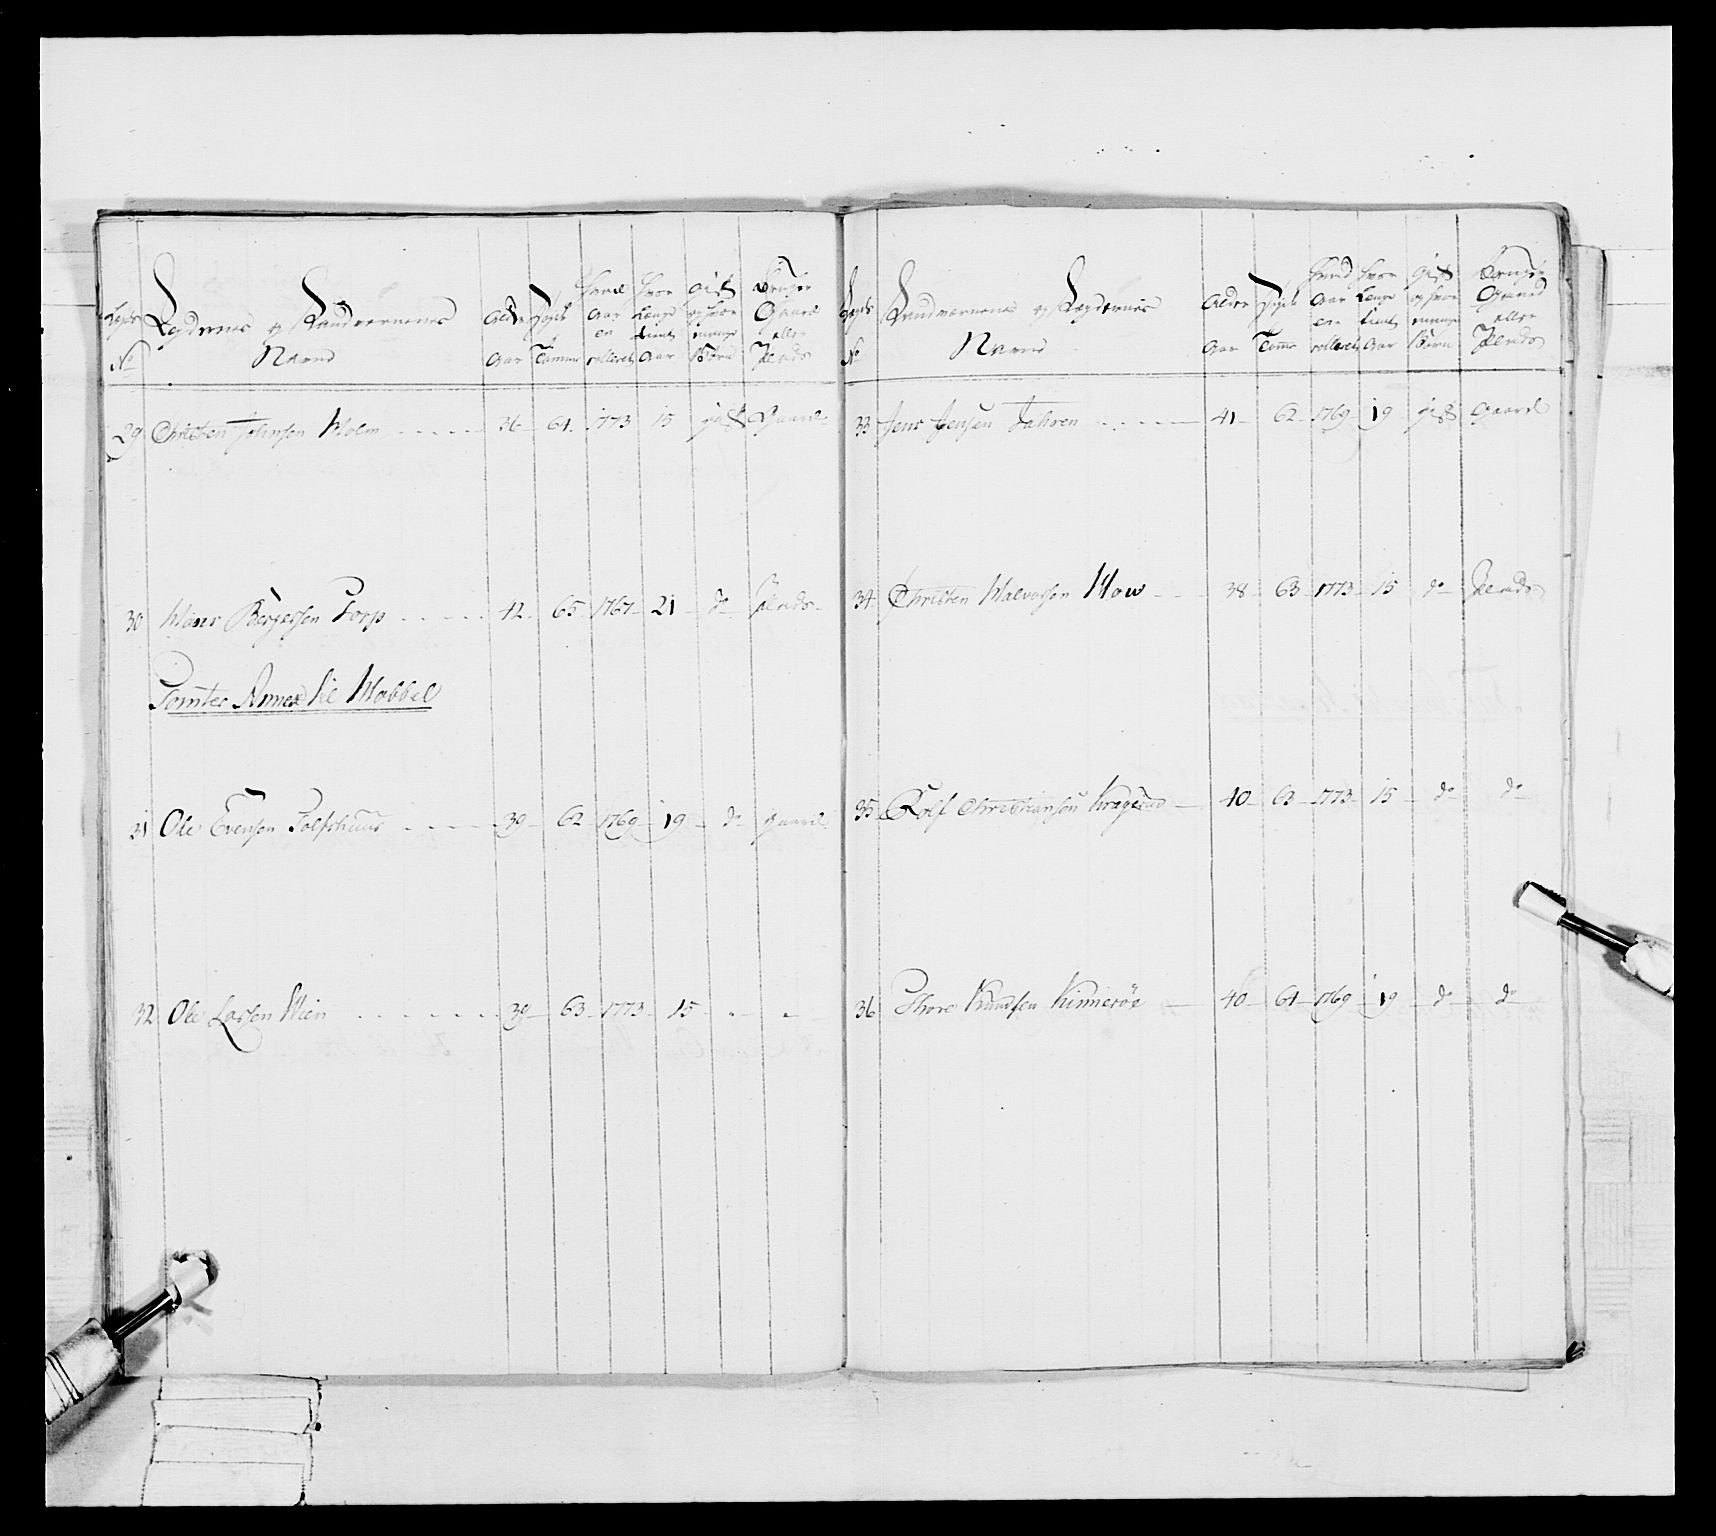 Legds No
Legdernes og Landværnenes Navne
Alder Aar
Tommer
Hvad Aar en rolleret
Hvor Længe tient Aar
Gift og hvor mange Børn
Bruger Gaard eller Plads
29 Christen Johnsen Holm 36 64 1773 15 gift Gaard
30 Hans Børgersen Torp 42 65 1767 21 do Plads
Tomter Annex til Hobbel
31 Ole Evensen Tolfshuus 39 62 1769 19 do Gaard
32 Ole Larsen Wien 39 63 1773 15 " "
Legds No
Landværnenes og Legdernes Navne
Alder Aar
Tomme
Hvad Aar en rolleret
Hvor Længe tient Aar
Gift og hvor mange Børn
Bruger Gaard eller Plads
33 Jens Jensen Fahren 41 62 1769 19 gift Gaard
34 Christen Halvorsen How 38 63 1773 15 do Plads
35 Rolf Christiansen Kragerud 40 63 1773 15 do do
36 Thore Knudsen Kinneröe 40 61 1769 19 do do